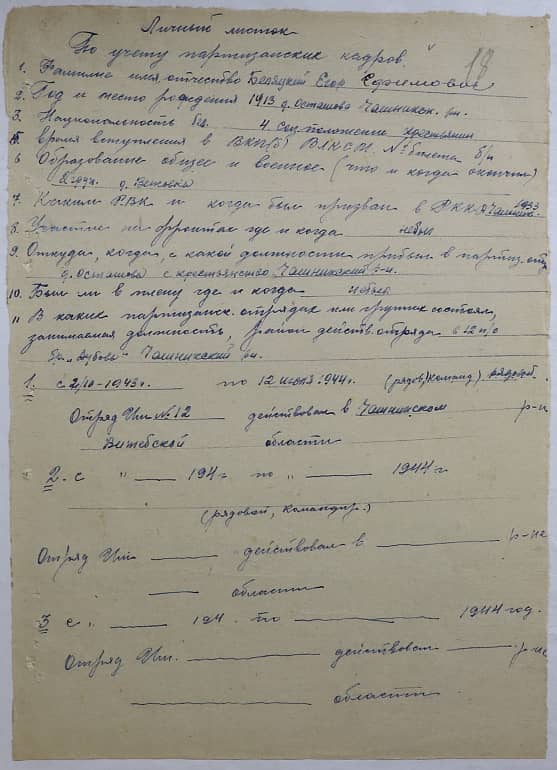 Личный листок
По учету партизанских кадров.
1. Фамилия имя отчество Беляцкий Егор Ефимович
2. Год и место рождения 1913 д. Осташова Чашникск. р-н.
3. Национальность бел. 4 Соц. положение крестьянин
5. Время вступления в ВКП(б) ВЛКСМ. № билета б/п
6 Образование общее и военное (что и когда окончил)
7. Каким РВК и когда был призван в РККА 1933
8. Участие на фронтах где и когда небыл
9. Откуда, когда, с какой должности прибыл в партиз. отр.
д. Осташова с крестьянство Чашникский р-н.
10. Был ли в плену где и когда небыл
11 В каких партизанск. отрядах или группах состоял,
занимаемая должность, район действ. отряда в 12 п/о
бр. „Дубова" Чашникский р-н.
1. с 2/III-1943 г. по 12 июля 1944 г. (рядов./команд.) рядовой.
Отряд Им. № 12 действовал в Чашникском р-не
Витебской области
2. с " 194 г по " 1944 г
(рядовой, командир.)
Отряд Им. действовал в р-не
области
3 с " 194 по 1944 год.
Отряд Им. действовал р-не
области